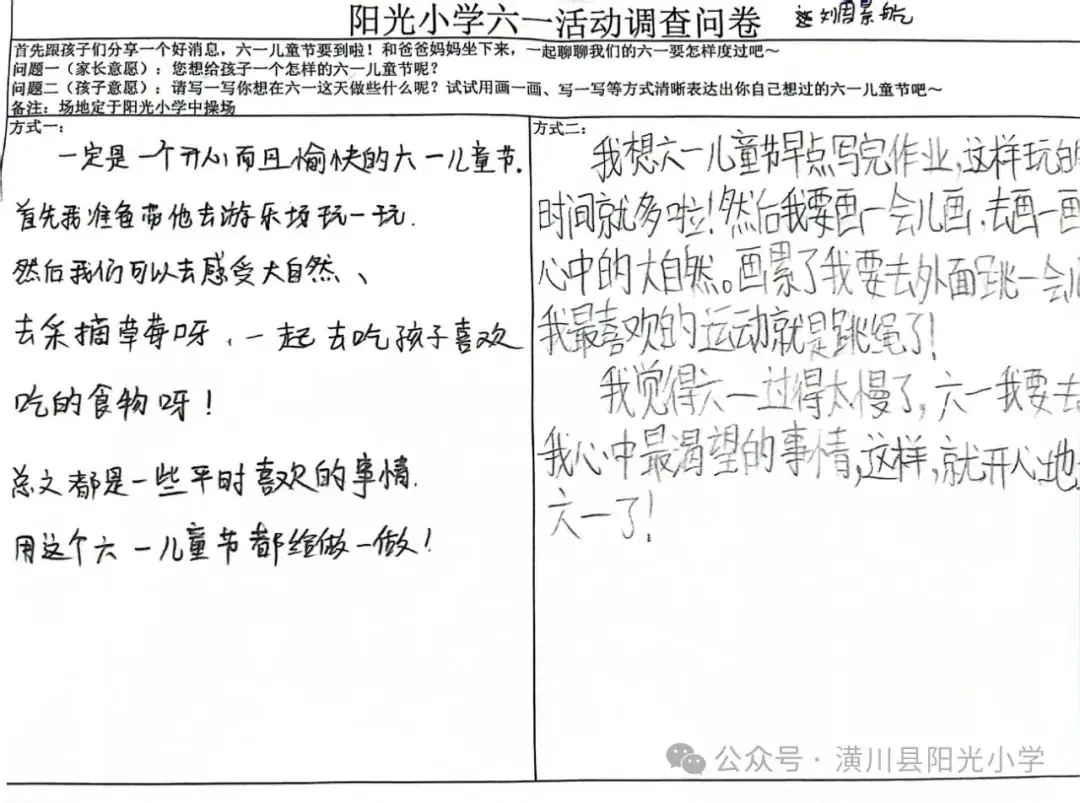 阳光小学六一活动调查问卷
首先跟孩子们分享一个好消息，六一儿童节要到啦！和爸爸妈妈坐下来，一起聊聊我们的六一要怎样度过吧～
问题一（家长意愿）：您想给孩子一个怎样的六一儿童节呢？
问题二（孩子意愿）：请写一写你想在六一这天做些什么呢？试试用画一画、写一写等方式清晰表达出你自己想过的六一儿童节吧～
备注：场地定于阳光小学中操场
方式一：
一定是一个开心而且愉快的六一儿童节.
首先我准备带他去游乐场玩一玩.
然后我们可以去感受大自然、
去采摘草莓呀、一起去吃孩子喜欢
吃的食物呀！
总文都是一些平时喜欢的事情.
用这个六一儿童节都给做一做！
方式二：
我想六一儿童节早点写完作业,这样玩的
时间就多啦！然后我要画一会儿画,去画一画
心中的大自然。画累了我要去外面跳一会儿
我最喜欢的运动就是跳绳了！
我觉得六一过得太慢了,六一我要去
我心中最渴望的事情,这样,就开心地
六一了！
公众号·潢川县阳光小学